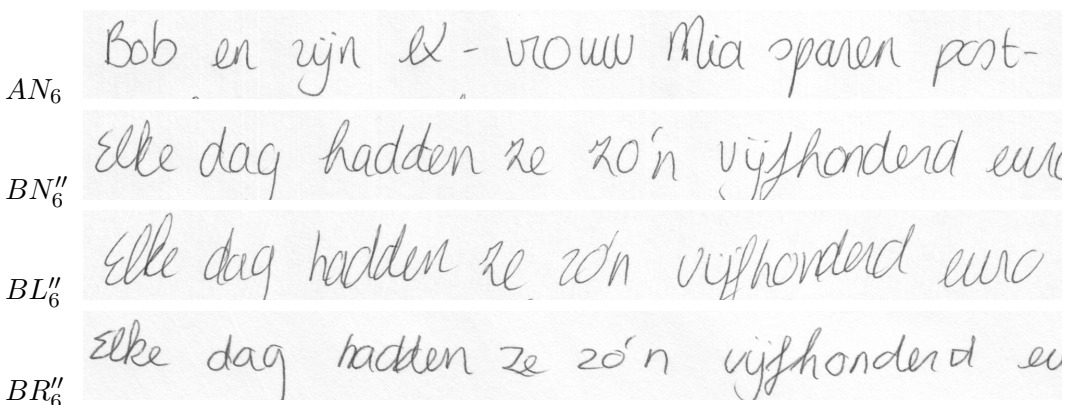 AN₆ Bob en zijn ex - vrouw Mia sparen post-
BN₆″ Elke dag hadden ze zo'n vijfhonderd euro
BL₆″ Elke dag hadden ze zo'n vijfhonderd euro
BR₆″ Elke dag hadden ze zo'n vijfhonderd eu